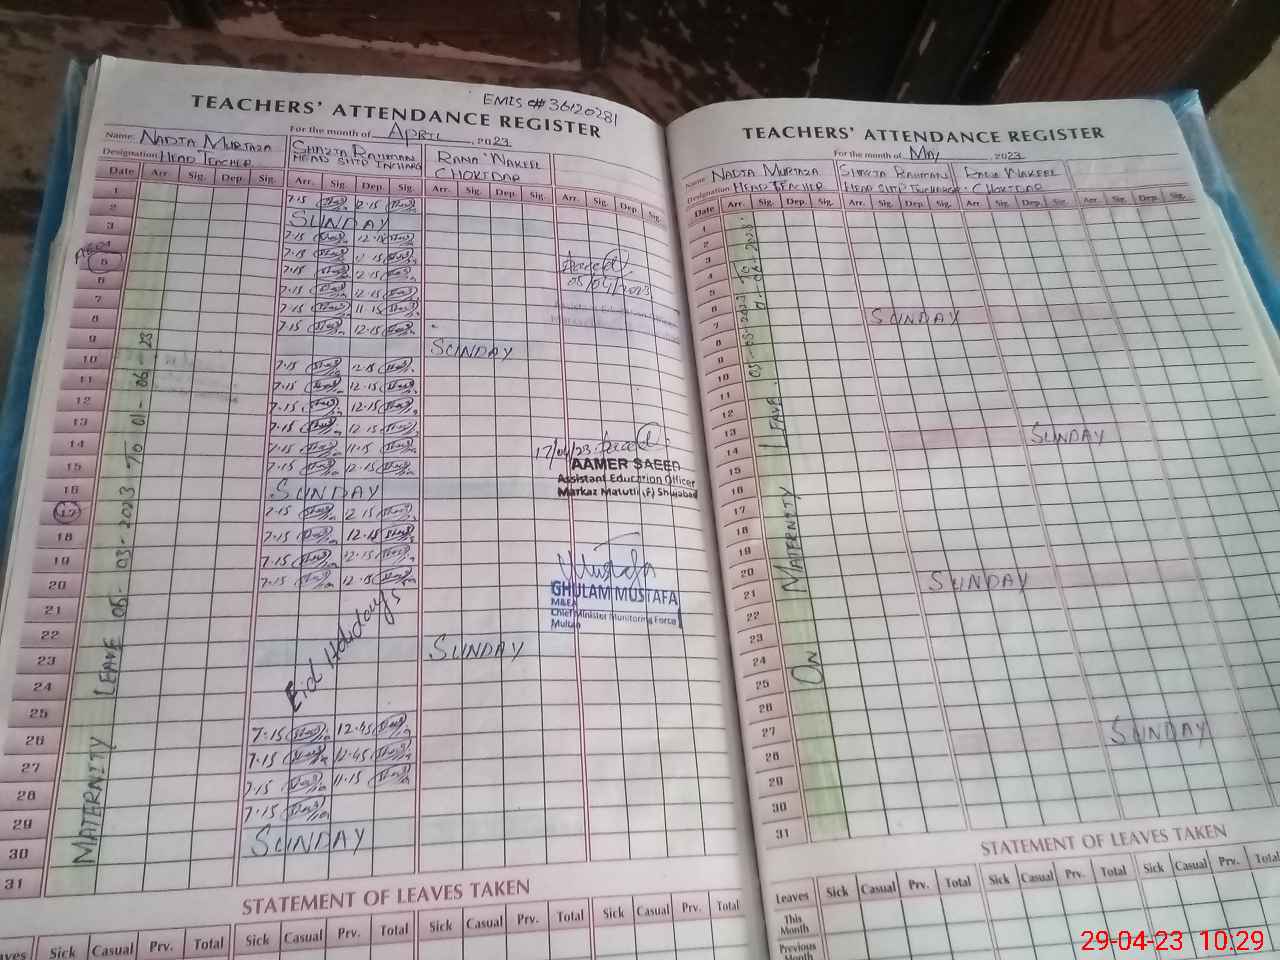 EMIS C# 36120281
TEACHERS' ATTENDANCE REGISTER
For the month of APRIL 2023
Name: NADIA MURTAZA SHAZIA RAHMAN RANA WAKEEL
Designation HEAD TEACHER HEAD SHITD INCHARG CHOKIDAR
Date Arr. Sig. Dep. Sig. Arr. Sig. Dep. Sig. Arr. Sig. Dep. Sig. Arr. Sig. Dep. Sig.
1 7.15 12.15
2 SUNDAY
3 7.15 12.15
7.15 12.15
5 7.15 12.15
05/04/2023
6 7.15 12.15
7 7.15 11.15
8 7.15 12.15
9 SUNDAY
10 7.15 12.15
11 7.15 12.15
12 7.15 12.15
13 7.15 12.15
14 7.15 11.15
17/04/23
15 7.15 12.15
AAMER SAEED
Assistant Education Officer
Markaz Matutli (F) Shujabad
16 SUNDAY
17 7.15 12.15
18 7.15 12.15
19 7.15 12.15
20 7.15 12.15
21
GHULAM MUSTAFA
M&EA
Chief Minister Monitoring Force
Multan
22
Eid Holidays
23 SUNDAY
24
25
26 7.15 12.45
27 7.15 12.45
28 7.15 11.15
29 7.15
30 SUNDAY
31
MATERNITY LEAVE 05-03-2023 TO 01-06-23
STATEMENT OF LEAVES TAKEN
Sick Casual Prv. Total Sick Casual Prv. Total Sick Casual Prv. Total
TEACHERS' ATTENDANCE REGISTER
For the month of May 2023
Name: NADIA MURTAZA SHAZIA RAHMAN RANA WAKEEL
Designation HEAD TEACHER HEAD SHITD INCHARGE CHOKIDAR
Date Arr. Sig. Dep. Sig. Arr. Sig. Dep. Sig. Arr. Sig. Dep. Sig. Arr. Sig. Dep. Sig.
1
2
3
4
5
6
7 SUNDAY
8
9
10
11
12
13
14 SUNDAY
15
16
17
18
19
20
21 SUNDAY
22
23
24
25
26
27
28 SUNDAY
29
30
31
ON MATERNITY LEAVE. 05-03-2023 TO 01-06-2023.
STATEMENT OF LEAVES TAKEN
Leaves Sick Casual Prv. Total Sick Casual Prv. Total Sick Casual Prv. Total
This Month
Previous Month
29-04-23 10:29